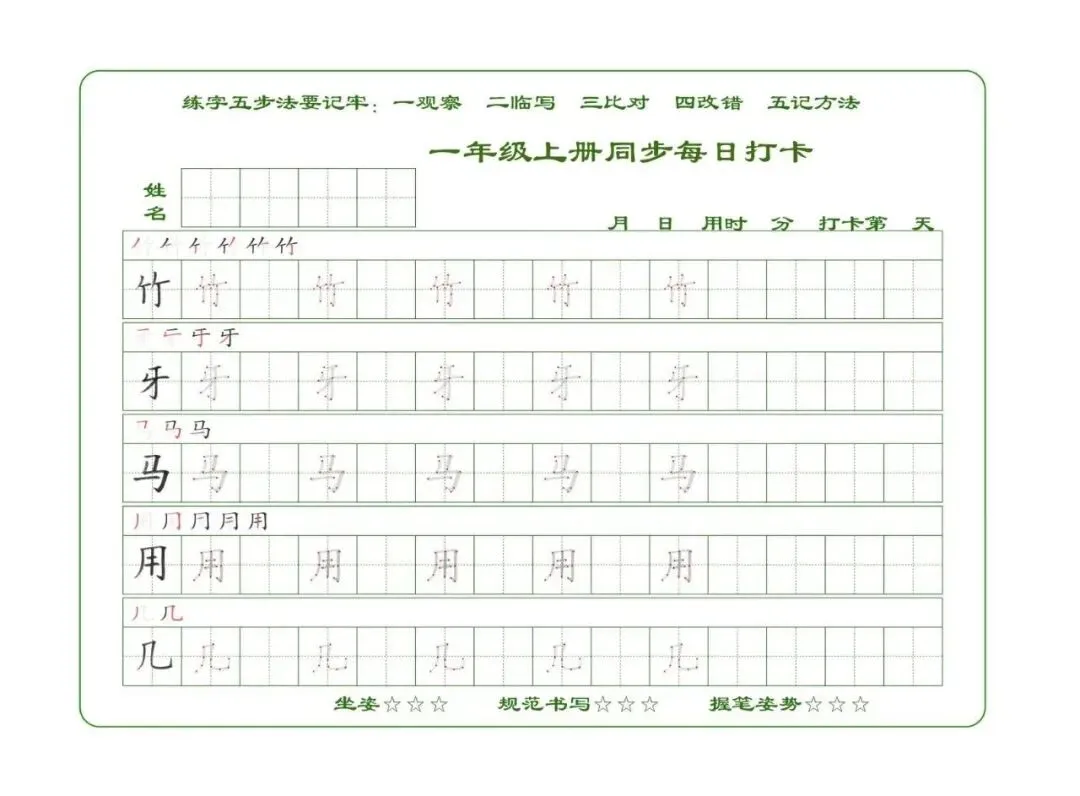 练字五步法要记牢：一观察 二临写 三比对 四改错 五记方法
一年级上册同步每日打卡
姓名
月 日 用时 分 打卡第 天
竹
竹 竹 竹 竹 竹 竹
牙
牙 牙 牙 牙 牙 牙
马
马 马 马 马 马 马
用
用 用 用 用 用 用
几
几 几 几 几 几 几
坐姿☆☆☆ 规范书写☆☆☆ 握笔姿势☆☆☆